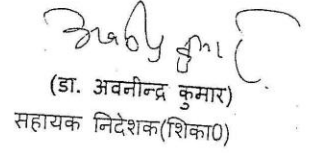 (डा. अवनीन्द्र कुमार)
सहायक निदेशक(शिका0)